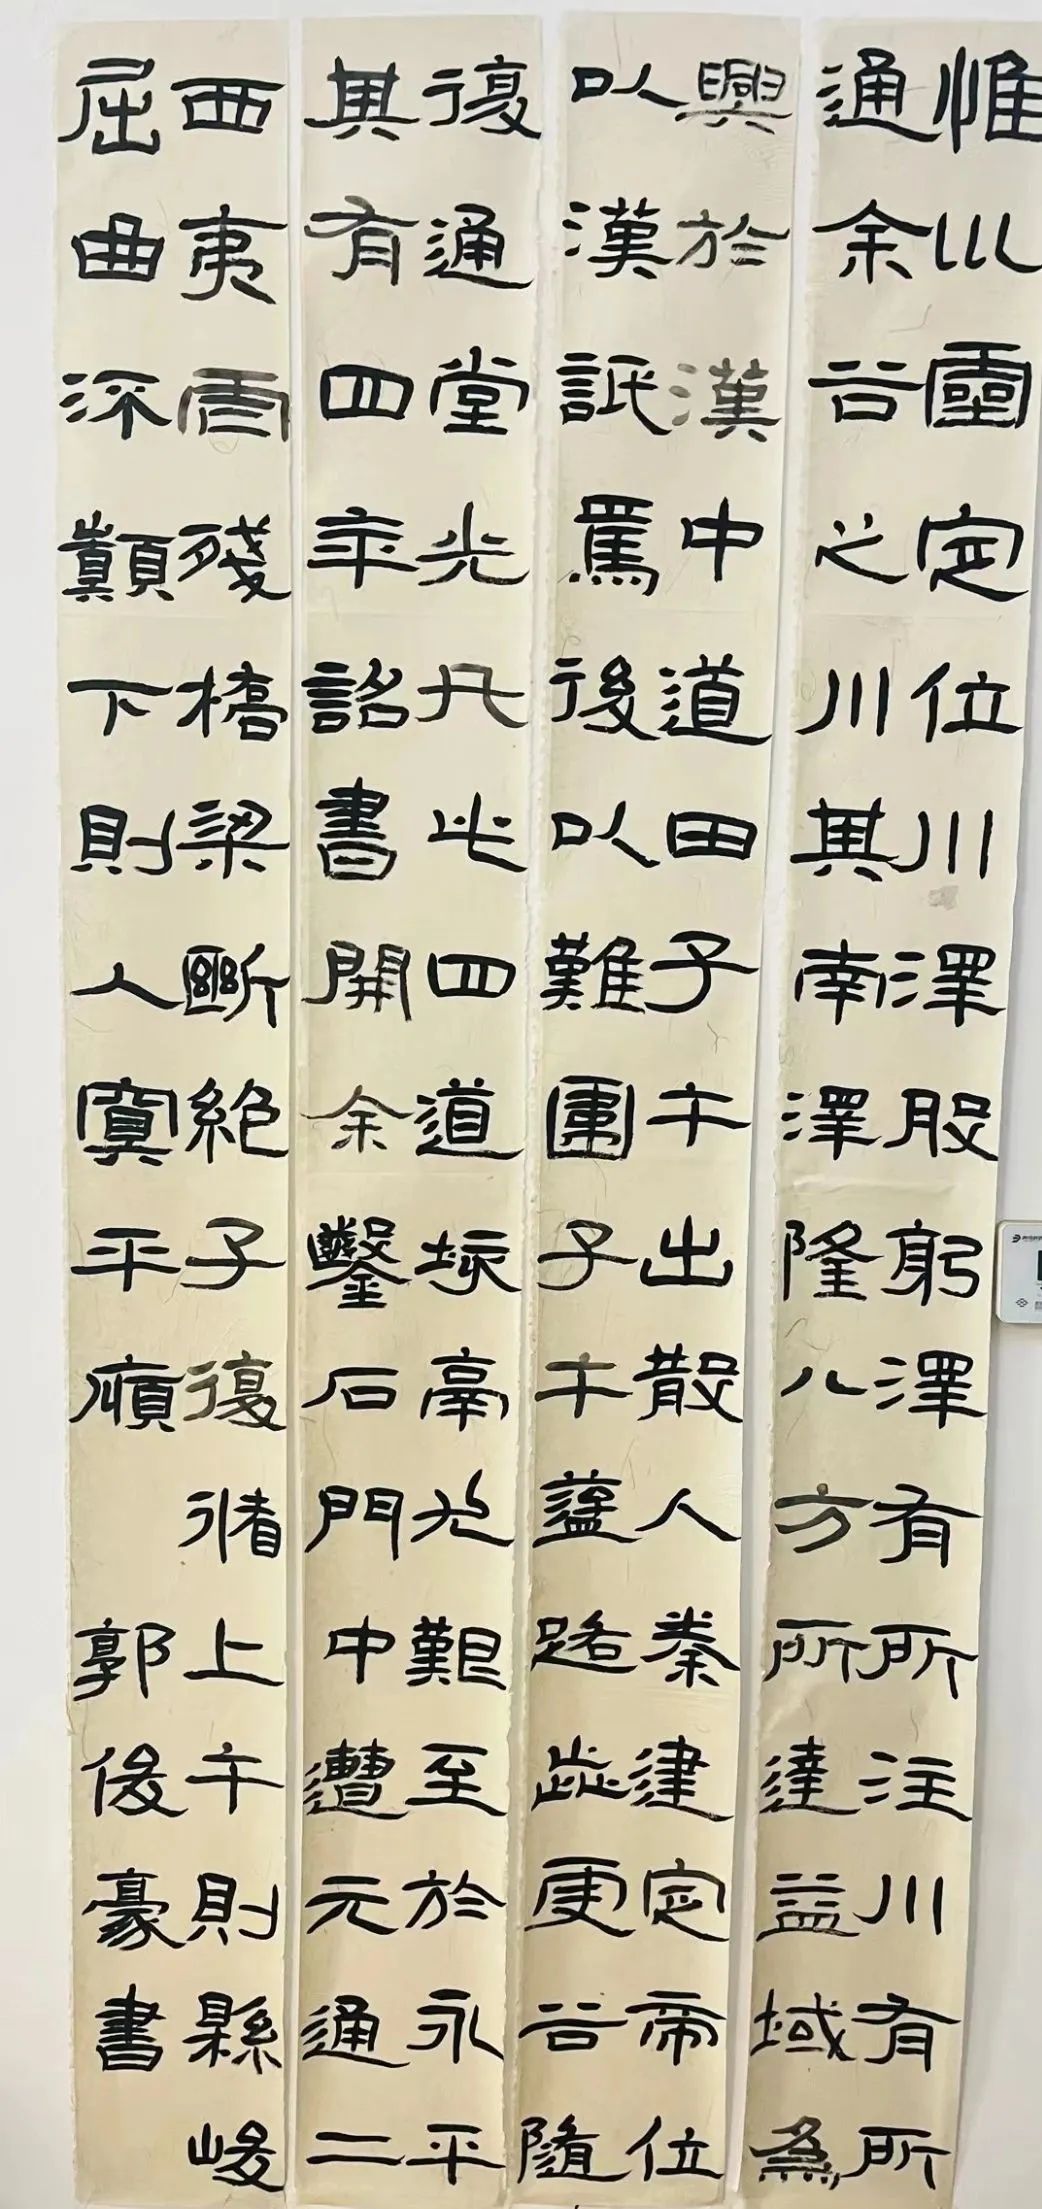 惟巛靈定位川澤股躬澤有所注川有所
通余谷之川其南澤隆八方所達益域為
興於漢中道由子午出散入秦建定帝位
以漢詆焉後以難圍子午路歰更谷隨
復通堂光凡此四道垓鬲尤艱至於永平
其有四年詔書開余鑿石門中遭元通二
西夷虐殘橋梁斷絕子復循上午則縣峻
屈曲流顛下則入冥平傾
郭俊豪書